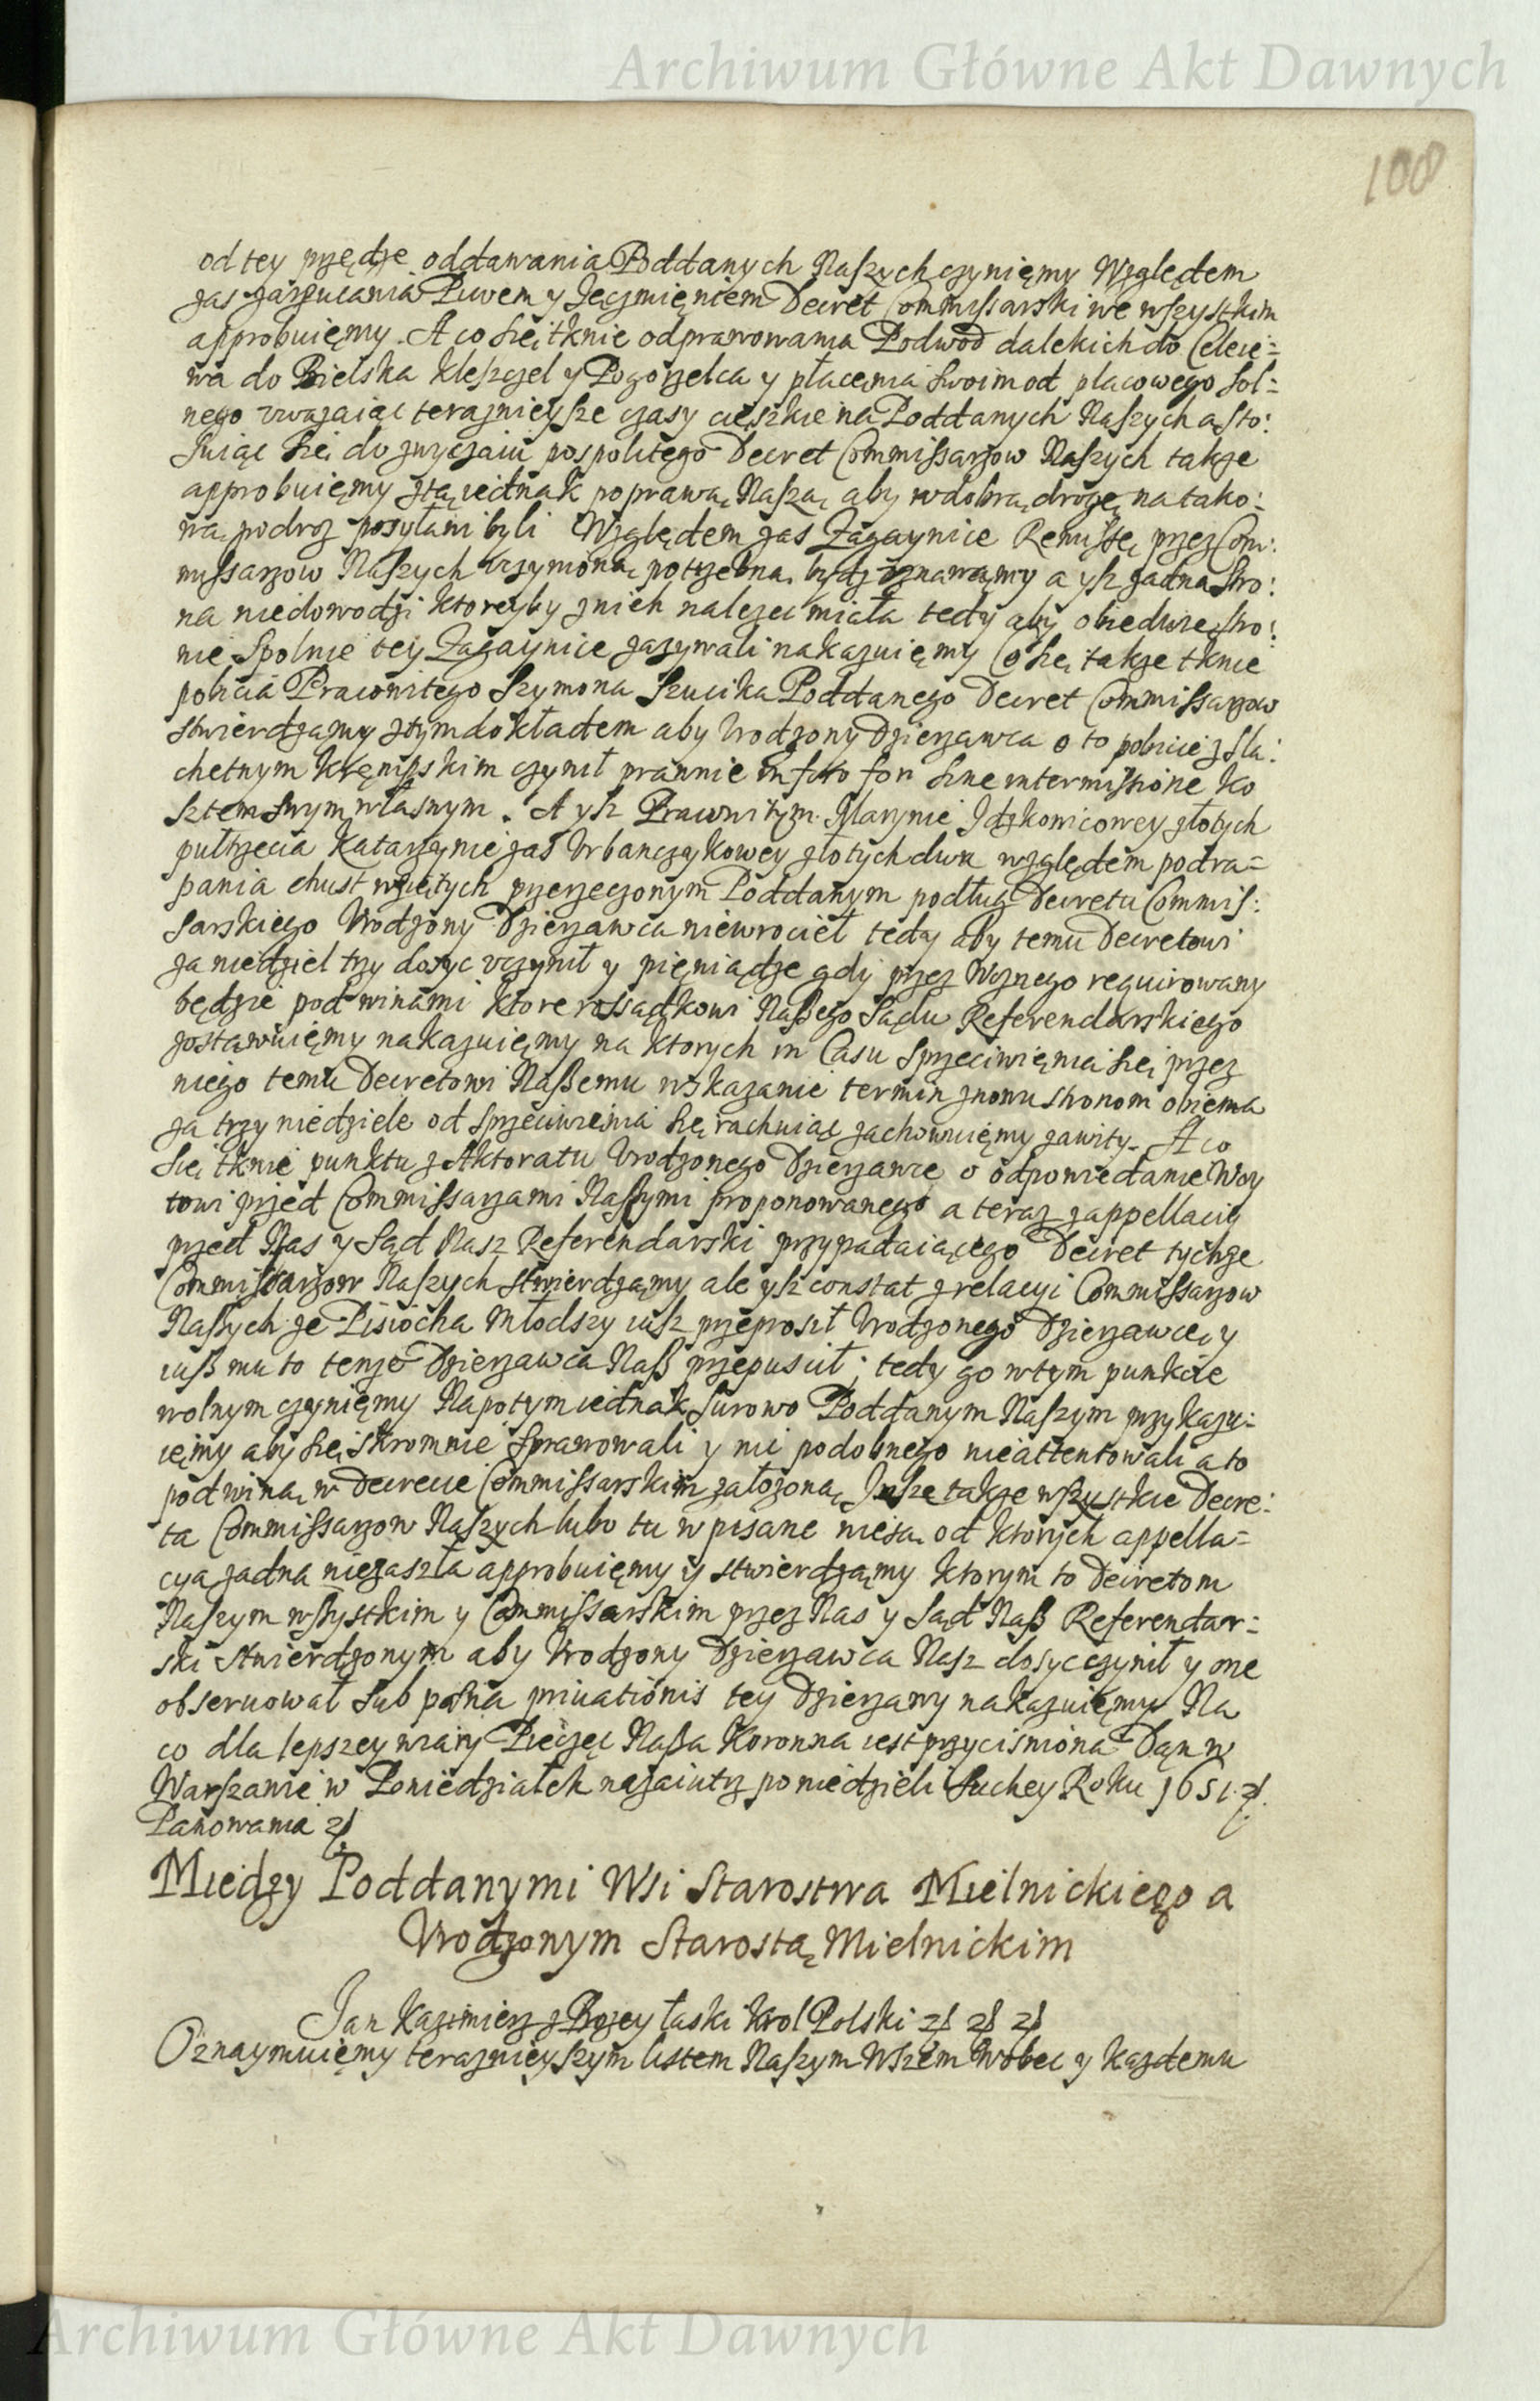 Archiwum Główne Akt Dawnych
108
od tey przędze oddawania Poddanych Naszych czynięmy Względem
zas zarzucania Piwem y Jęczmięniem Decret Commissarski we wszystkim
approbuięmy. A co się tknie odprawowania Podwod dalekich do
wa do Bielska Kleszczel y Pogorzelca y płacęnia swoim od placowego sol=
nego vwazaiąc teraznieysze czasy cięszkie na Poddanych Naszych a sto:
suiąc się do zwyczaiu pospolitego Decret Commissarzow Naszych takze
approbuięmy z tą iednak poprawą Naszą aby w dobrą drogę na tako:
wą podroz posyłani byli Względem zas Zagaynice Remissę przez Com:
missarzow Naszych vczynioną potrzebną bydz vznawamy a ysz zadna stro:
na niedowodzi ktoreyby z nich nalezec miała tedy aby obiedwie stro:
nie Spolnie tey Zagaynice zazywali nakazuięmy Co się takze tknie
pobicia Pracowitego Szymona Szucika Poddanego Decret Commissarzow
stwierdzamy z tym dokładem aby Vrodzony Dzierzawca o to pobicie z sla:
chetnym czynił prawnie in foro fori sine intermissione ko
sztem swym własnym. A ysz Pracowitym Marynie Idzkowicowey złotych
pułtrzecia Katarzynie zas Vrbanczykowey złotych dwa względem podra=
pania chust wziętych przerzeczonym Poddanym podług Decretu Commis:
sarskiego Vrodzony Dzierzawca niewrocieł tedy aby temu Decretowi
za niedziel trzy dosyc vczynił y pięniądze gdy przez Woznego requirowany
będzie pod winami ktore rossądkowi Naszego Sądu Referendarskiego
zostawuięmy nakazuięmy na ktorych in Casu sprzeciwięnia się przez
niego temu Decretowi Naszemu wskazanie termin znowu stronom obiema
za trzy niedziele od sprzeciwięnia się rachuiąc zachowuięmy zawity. A co
się tknie punktu z Aktoratu Vrodzonego Dzierzawcę o odpowiedanie Woy
towi przed Commissarzami Naszymi proponowanego a teraz z appellaciy
przed Nas y Sąd Nasz Referendarski przypadaiącego Decret tychze
Commissarzow Naszych stwierdzamy ale ysz constat z relacyi Commissarzow
Naszych ze Pisiocha Młodszy iusz przeprosił Vrodzonego Dzierzawcę y
iusz mu to tenze Dzierzawca Nasz przepuscił; tedy go w tym punkcie
wolnym czynięmy Napotym iednak surowo Poddanym Naszym przykazu:
ięmy aby się skromnie sprawowali y nic podobnego nieattentowali a to
pod winą w Decrecie Commissarskim załozoną Insze takze wszystkie Decre:
ta Commissarzow Naszych lubo tu wpisane niesą od ktorych appella=
cya zadna niezaszła approbuięmy y stwierdzamy ktorym to Decretom
Naszym wszystkim y Commissarskim przez Nas y Sąd Nasz Referendar:
ski stwierdzonym aby Vrodzony Dzierzawca Nasz dosyc czynił y one
obseruował sub pœna priuationis tey Dzierzawy nakazuięmy Na
co dla lepszey wiary Pieczęc Nasza Koronna iest przycisniona Dan w
Warszawie w Poniedziałek nazaiutrz po niedzieli Suchey Roku 1651.
Panowania
Między Poddanymi Wsi Starostwa Mielnickiego a
Vrodzonym Starostą Mielnickim
Jan Kazimierz z Bozey łaski Krol Polski
Oznaymuięmy teraznieyszym listem Naszym Wszem Wobec y kazdemu
Archiwum Główne Akt Dawnych